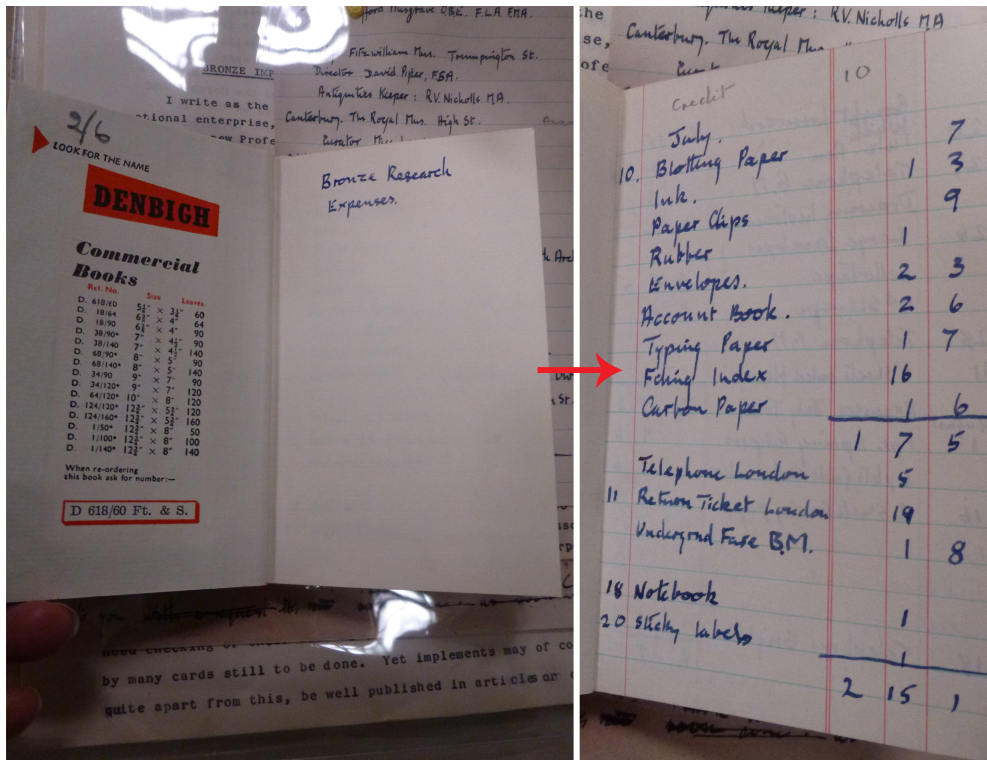 Musgrave O.B.E. F.L.A. F.M.A.
Fitzwilliam Mus. Trumpington St.
Director David Piper, F.S.A.
Antiquities Keeper: R.V. Nicholls M.A.
Canterbury. The Royal Mus. High St.
Curator
BRONZE IMP
I write as the
tional enterprise,
new Profe
2/6
LOOK FOR THE NAME
DENBIGH
Commercial
Books
Ref. No. Size Leaves
D. 618/60 5¼" × 3¼" 60
D. 18/64 6½" × 4" 64
D. 18/90 6½" × 4" 90
D. 38/90* 7" × 4½" 90
D. 38/140 7" × 4½" 140
D. 68/90* 8" × 5" 90
D. 68/140* 8" × 5" 140
D. 34/90 9" × 7" 90
D. 34/120* 9" × 7" 120
D. 64/120* 10" × 8" 120
D. 124/120* 12¾" × 5¾" 120
D. 124/160* 12¾" × 5¾" 160
D. 1/50* 12¾" × 8" 50
D. 1/100* 12¾" × 8" 100
D. 1/140* 12¾" × 8" 140
When re-ordering
this book ask for number:—
D 618/60 Ft. & S.
Bronze Research
Expenses.
need checking or
by many cards still to be done. Yet implements may of co
quite apart from this, be well published in articles or
the
se,
ofe
Keeper: R.V. Nicholls M.A
Canterbury. The Royal Mus
Credit 10
July. 7
10. Blotting Paper 1 3
Ink. 9
Paper Clips
Rubber 1
Envelopes. 2 3
Account Book. 2 6
Typing Paper 1 7
Filing Index 16
Carbon Paper 1 6
1 7 5
Telephone London 5
11 Return Ticket London 19
Undergrnd Fare B.M. 1 8
18 Notebook 1
20 Sticky labels 1
2 15 1